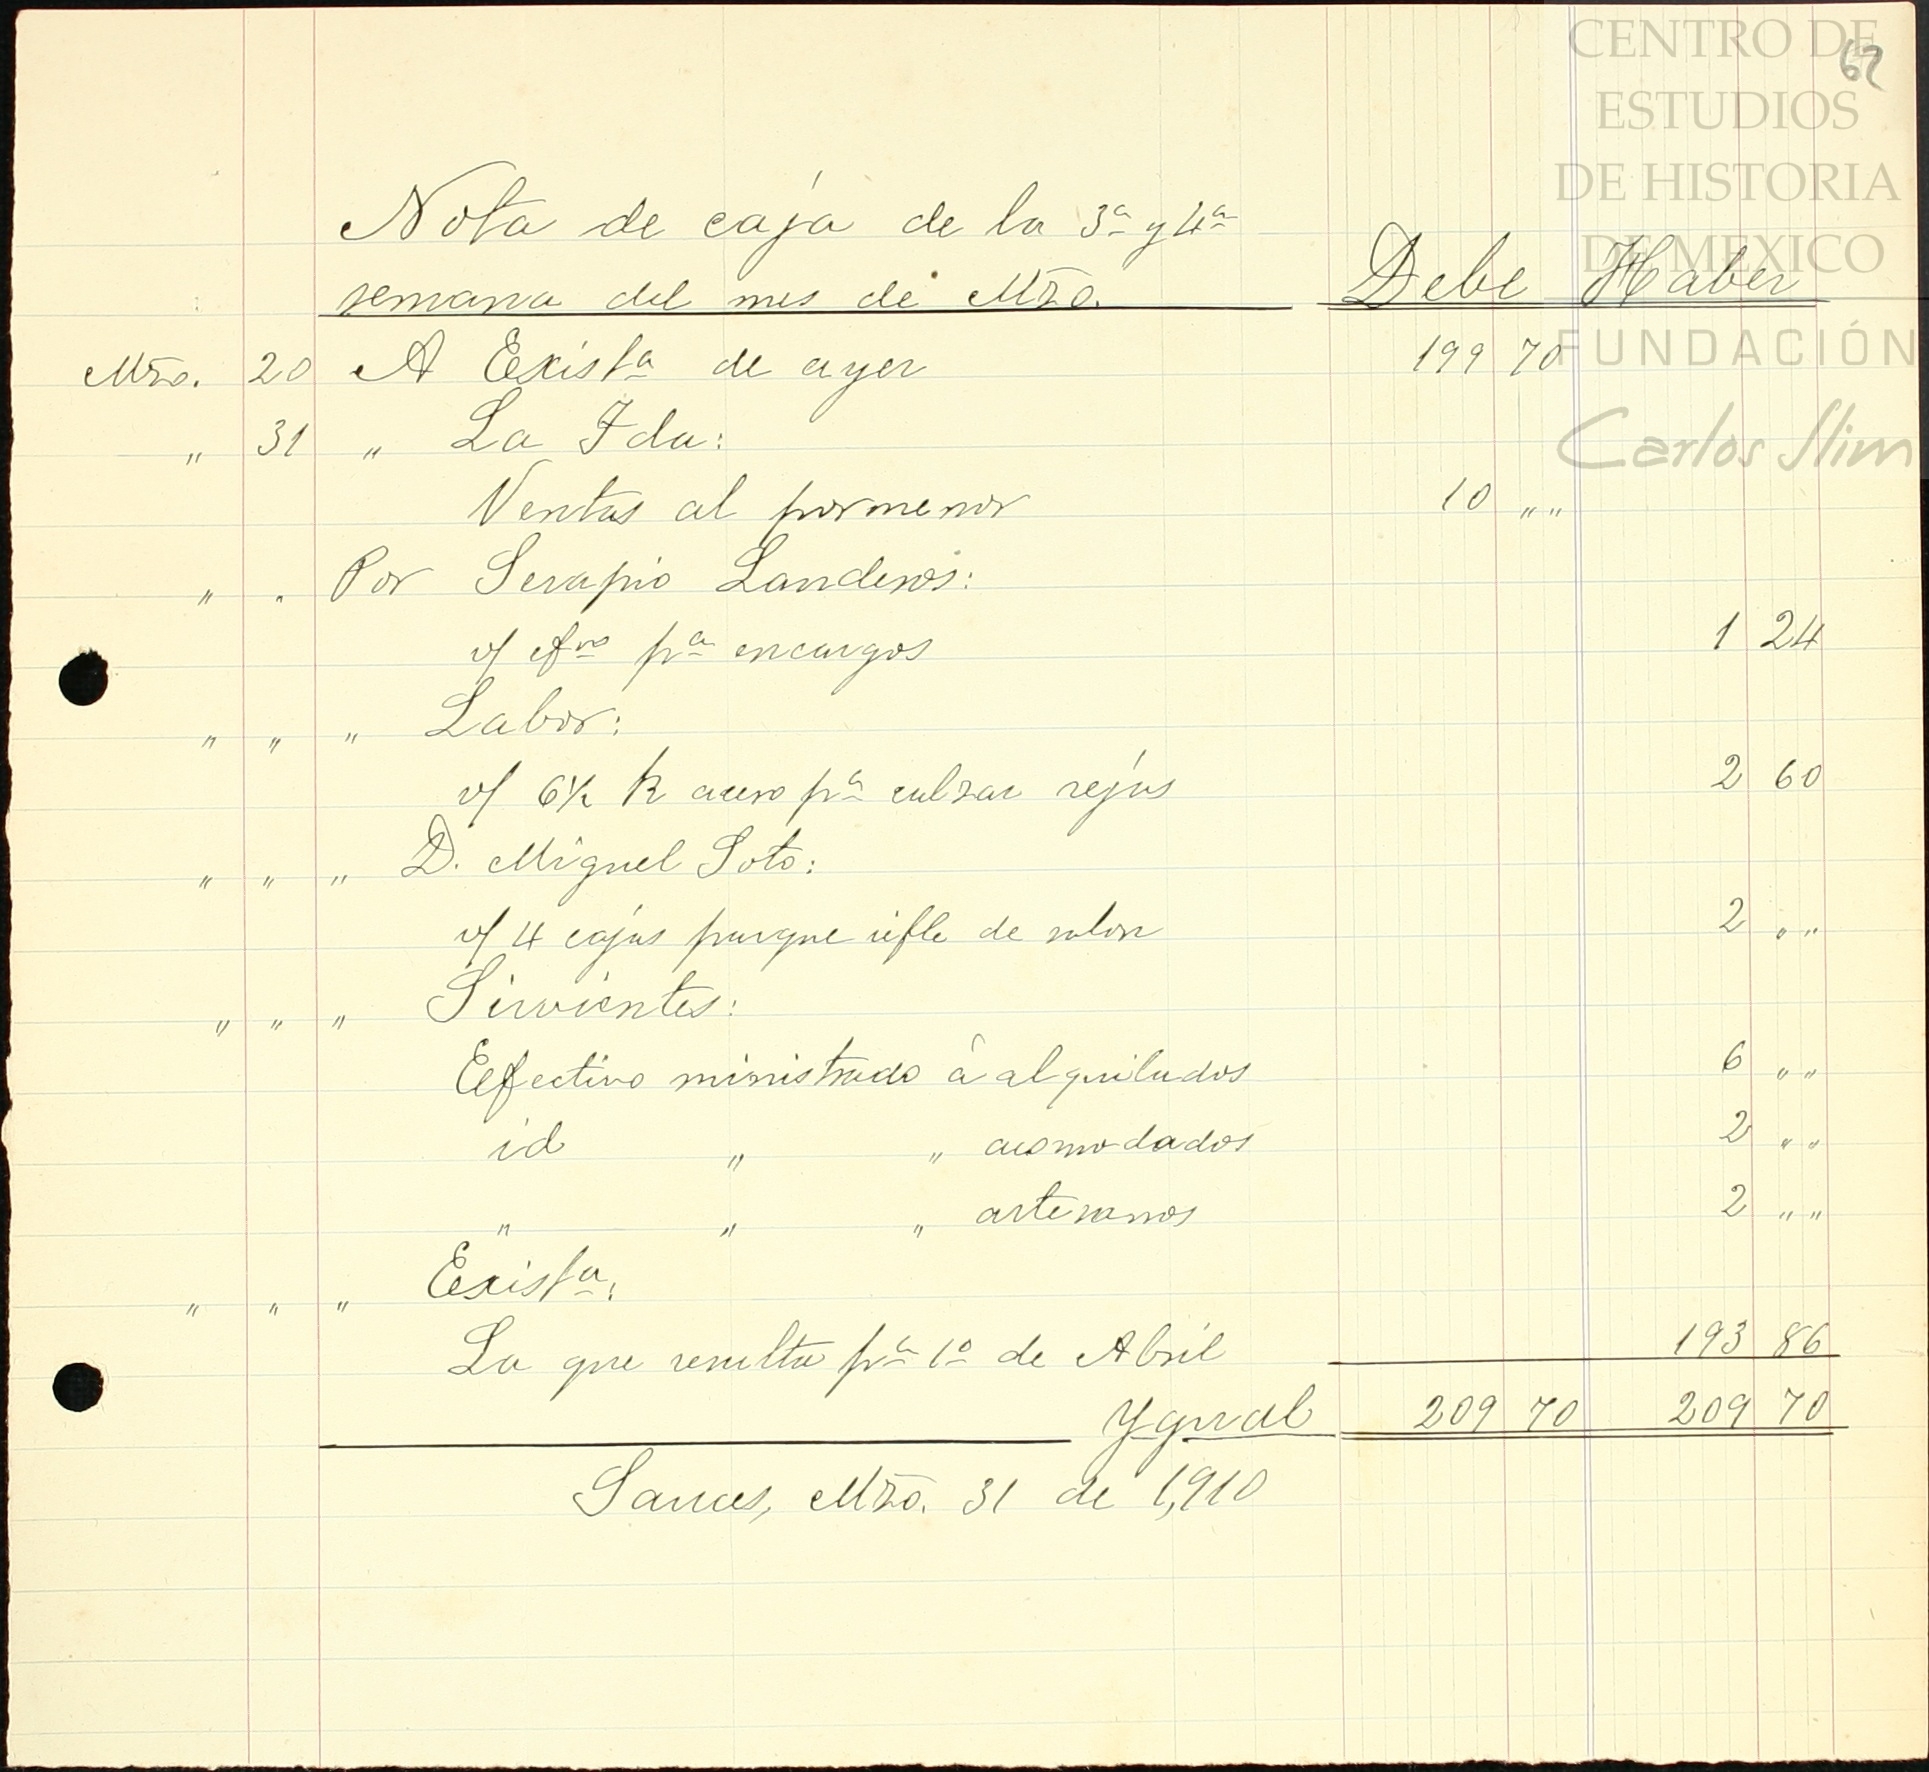 CENTRO DE
ESTUDIOS
DE HISTORIA
DE MEXICO
FUNDACIÓN
Carlos Slim
62
Nota de caja de la 3ª y 4ª
semana del mes de Mzo. Debe Haber
Mzo. 20 A Existª de ayer 199 70
" 31 " La Fda:
Ventas al pormenor 10 " "
" " Por Serapio Landeros:
v/ efvo pª encargos 1 24
" " " Labor:
v/ 6½ K acero pª calzar rejas 2 60
" " " D. Miguel Soto:
v/ 4 cajas parque rifle de salon 2 " "
" " " Sirvientes:
Efectivo ministrado á alquilados 6 " "
id " " acomodados 2 " "
" " " artesanos 2 " "
" " " Existª:
La que resulta pª 1º de Abril 193 86
Ygual 209 70 209 70
Sauces, Mzo. 31 de 1,910